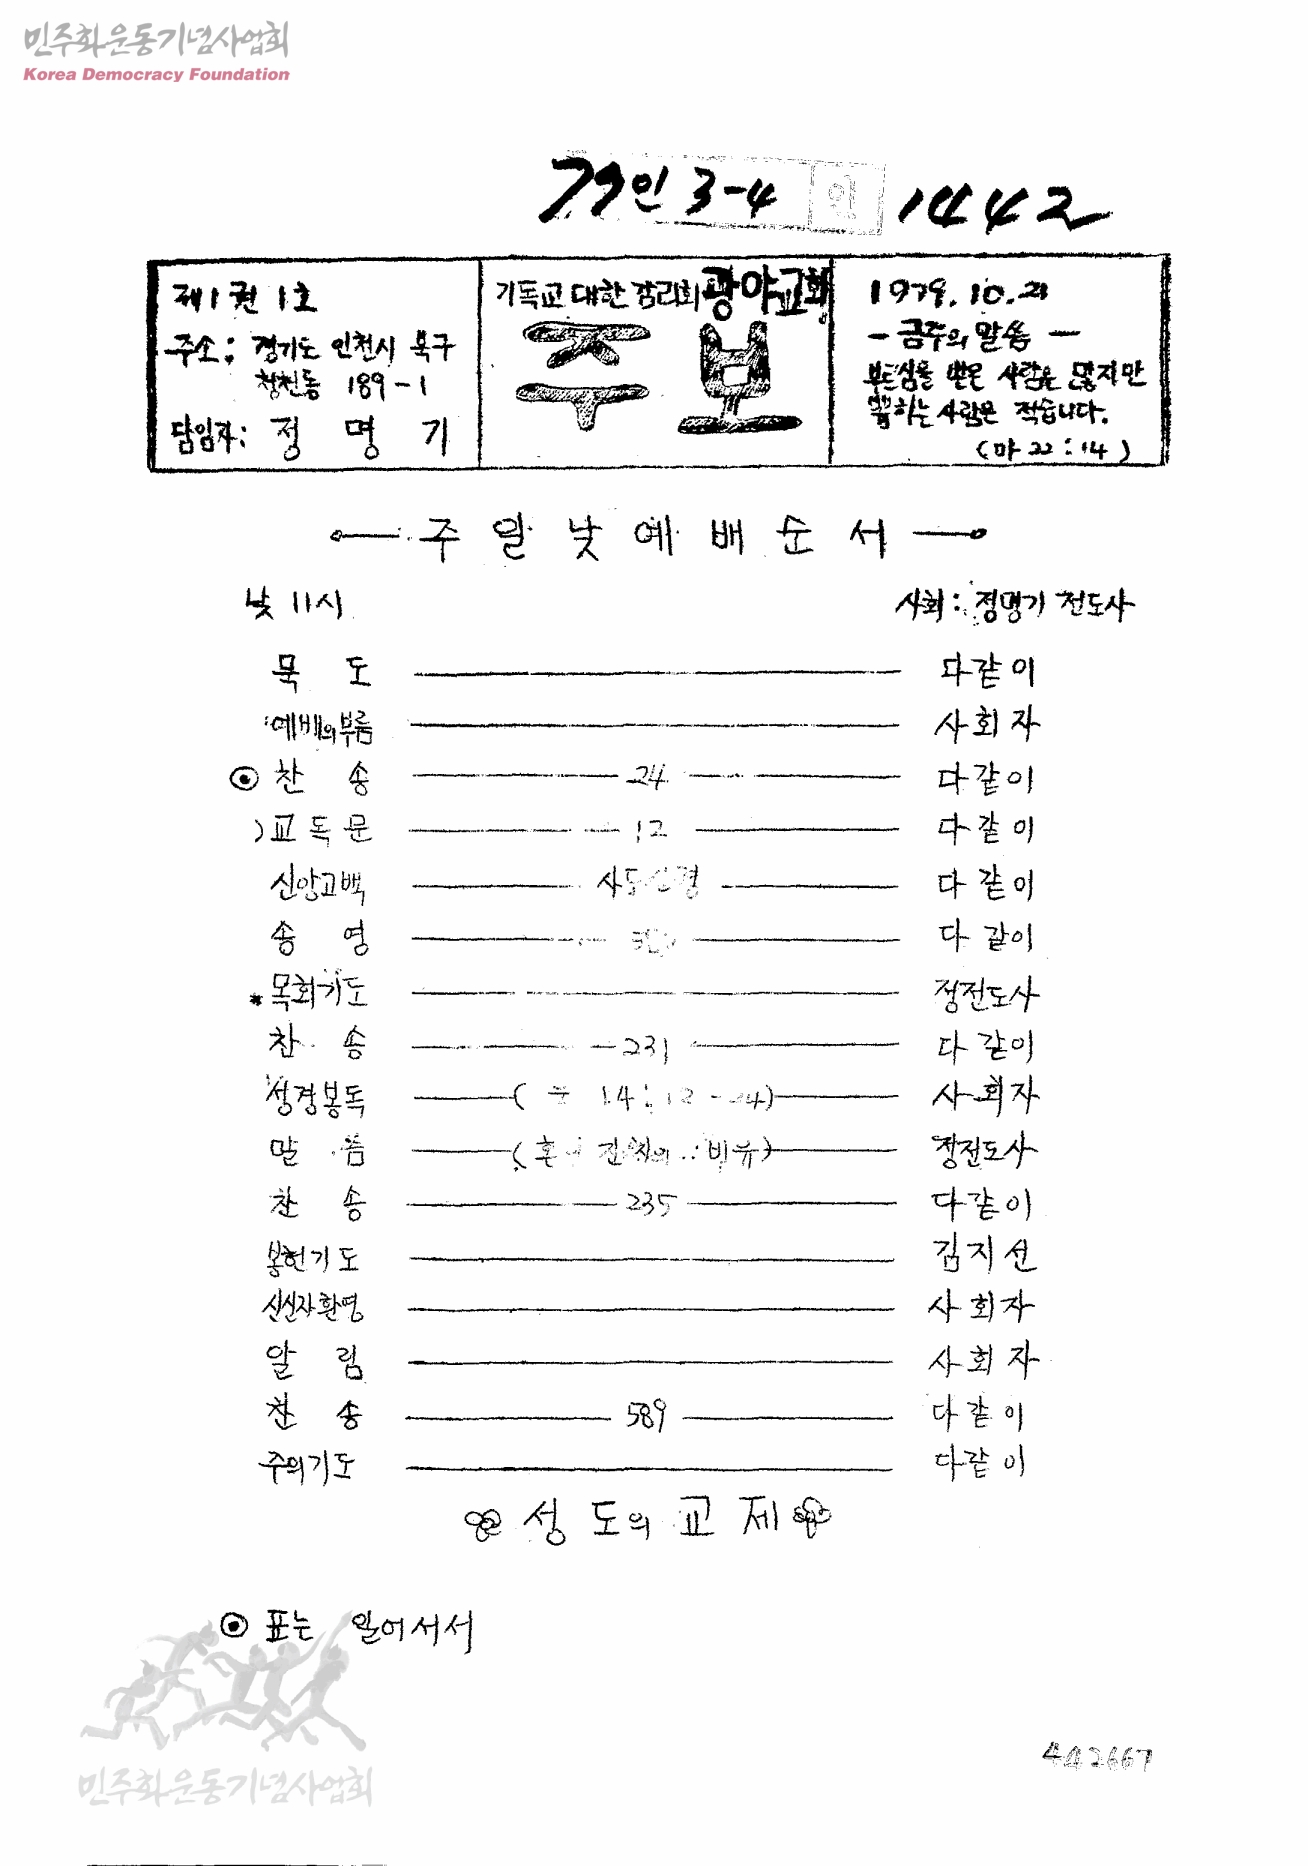 민주화운동기념사업회
Korea Democracy Foundation
79인 3-4 인 1442
제1권 1호
주소: 경기도 인천시 북구
청천동 189-1
담임자: 정 명 기
기독교 대한 감리회 광야교회
주 보
1979. 10. 21
- 금주의 말씀 -
부르심을 받은 사람은 많지만
뽑히는 사람은 적습니다.
(마 22:14)
주 일 낮 예 배 순 서
낮 11시 사회: 정명기 전도사
묵 도 다같이
예배의부름 사회자
◉ 찬 송 24 다같이
교 독 문 12 다같이
신앙고백 사도신경 다같이
송 영 다같이
* 목회기도 정전도사
찬 송 231 다같이
성경봉독 ( 14:12-24) 사회자
말 씀 (혼인 잔치의 비유) 정전도사
찬 송 235 다같이
봉헌기도 김지선
신신자환영 사회자
알 림 사회자
찬 송 589 다같이
주의기도 다같이
성 도의 교 제
◉ 표는 일어서서
민주화운동기념사업회
442667